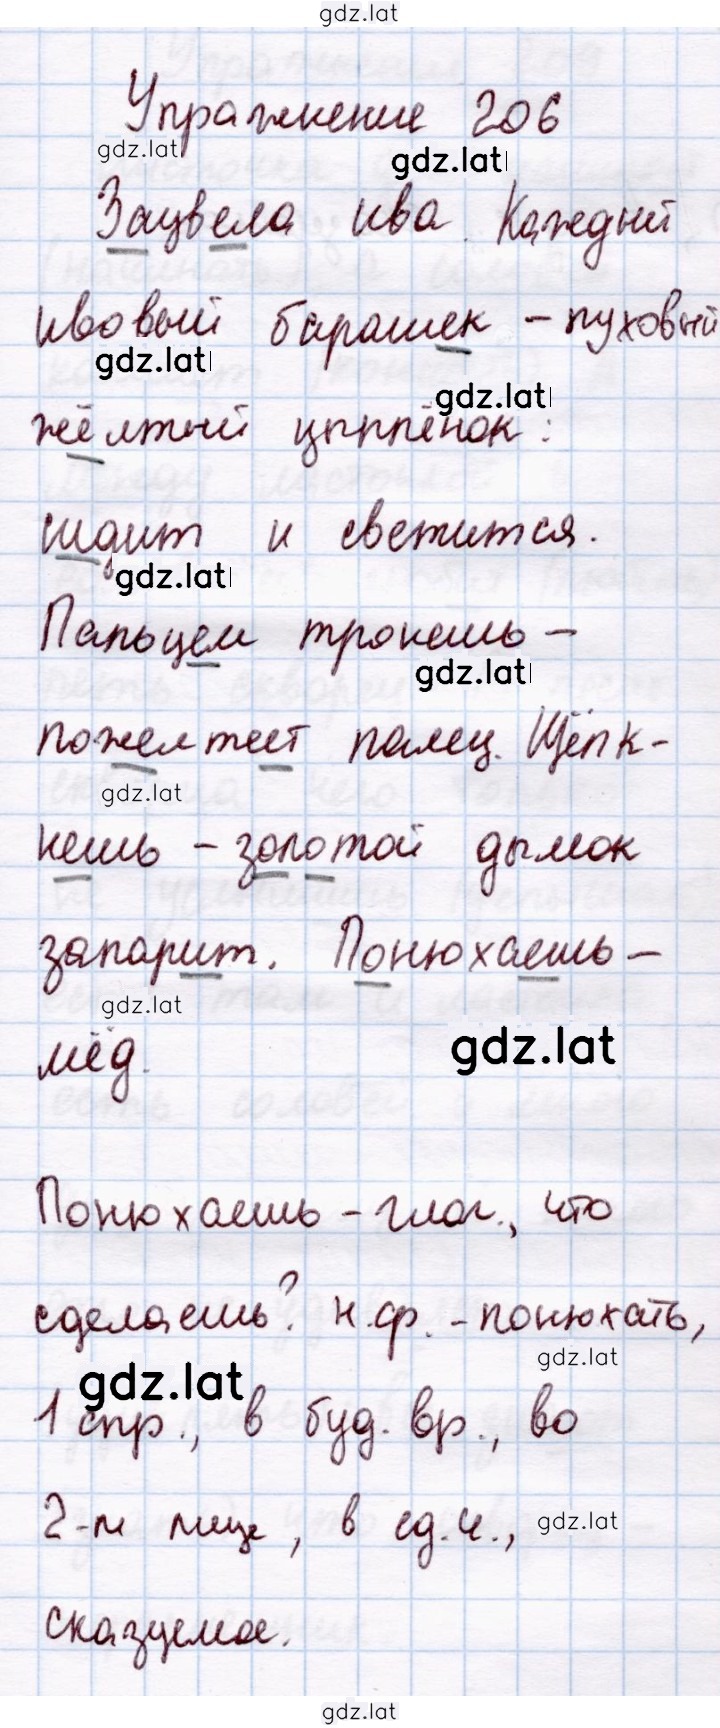 gdz.lat
Упражнение 206
gdz.lat
gdz.lat
Зацвела ива. Каждый
ивовый барашек – пуховый
gdz.lat
gdz.lat
жёлтый цыплёнок:
сидит и светится.
gdz.lat
Пальцем тронешь –
gdz.lat
пожелтеет палец. Щёлк-
gdz.lat
нешь – золотой дымок
запарит. Понюхаешь –
gdz.lat
gdz.lat
мёд.
Понюхаешь – глаг., что
сделаешь? н.ф. – понюхать,
gdz.lat
gdz.lat
1 спр., в буд. вр., во
2-м лице, в ед.ч.,
gdz.lat
сказуемое.
gdz.lat